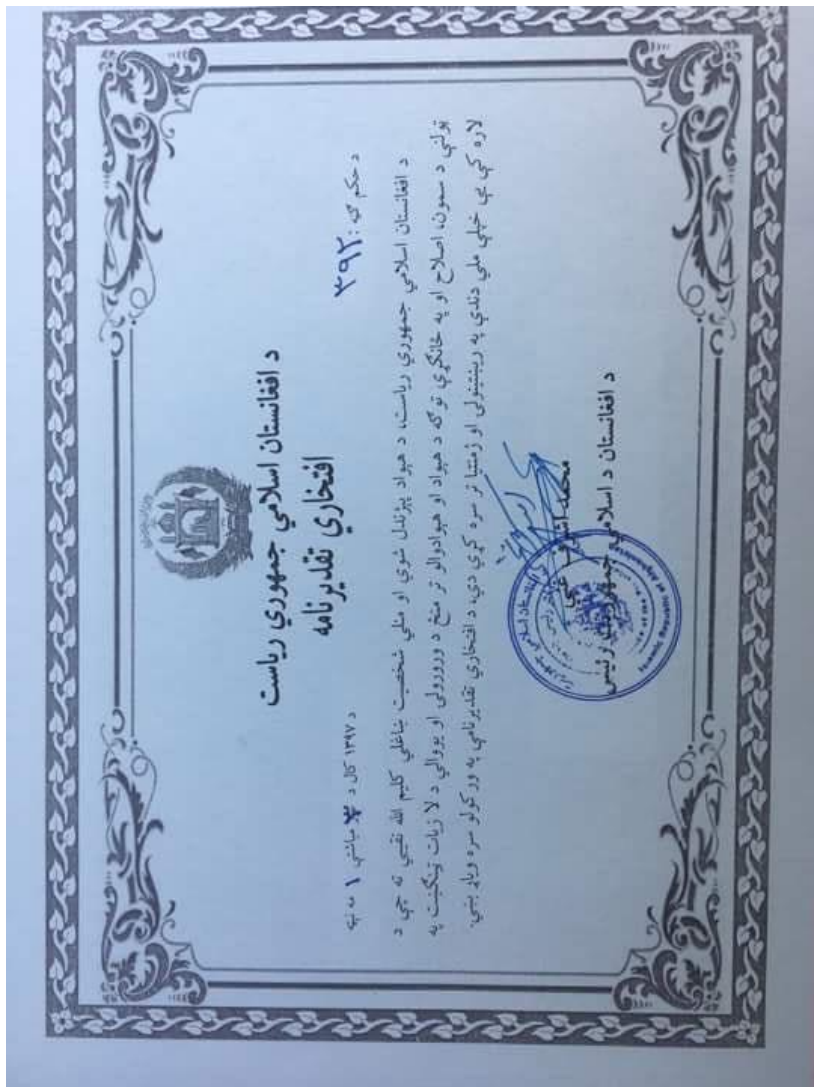 د افغانستان اسلامي جمهوري رياست
افتخاري تقديرنامه
د حکم گڼه: ۳۹۲
د ۱۳۹۷ کال د مياشتې ۱ مه نېټه
د افغانستان اسلامي جمهوري رياست، د هېواد پېژندل شوي او متلي شخصيت ښاغلي کليم الله نقيبي ته چې د
ټولنې د سمون، اصلاح او په ځانګړې توګه د هېواد او هېوادوالو تر منځ د ورورولۍ او يووالي د لا زيات ټينګښت په
لاره کې يې خپلې ملي دندې په رېښتينولۍ او ژمنتيا تر سره کړې دي، د افتخاري تقديرنامې په ورکولو سره وياړ بښي.
محمد اشرف غني
د افغانستان د اسلامي جمهوريت رئيس